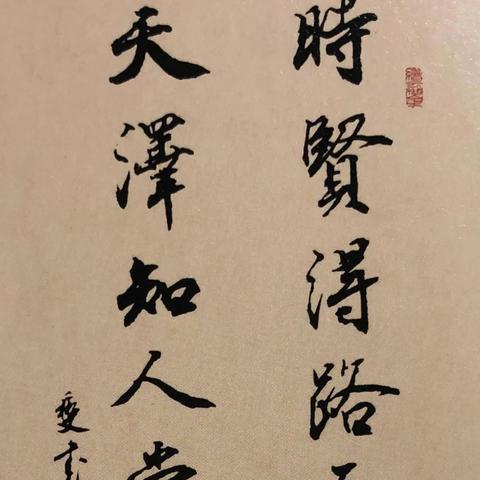 時賢得路
天澤知人